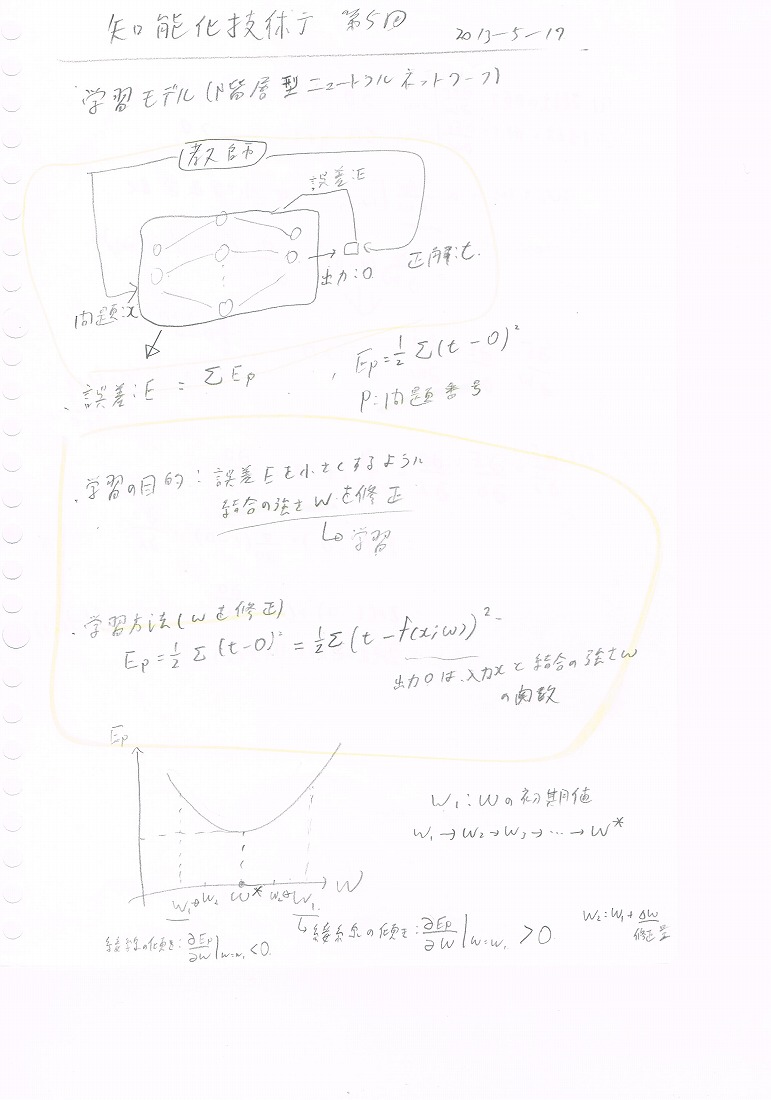 知能化技術 第5回 2013-5-19
学習モデル(階層型ニュートラルネットワーク)
教師
誤差:E
正解:t.
出力:O
問題:x
誤差:E = ΣEp , Ep=1/2 Σ(t-O)²
P:問題番号
学習の目的:誤差Eを小さくするように
結合の強さwを修正
↳学習
学習方法(wを修正)
Ep=1/2 Σ(t-O)²=1/2Σ(t-f(x;w))²
出力Oは、入力xと結合の強さw
の関数
Ep
W₁:Wの初期値
W₁→W₂→W₃→…→W*
W₁→W₂ W* W₂←W₁ W
W₂:W₁+ΔW
修正量
接線の傾き:∂Ep/∂W|w=w₁<0
接線の傾き:∂Ep/∂W|w=w₁>0